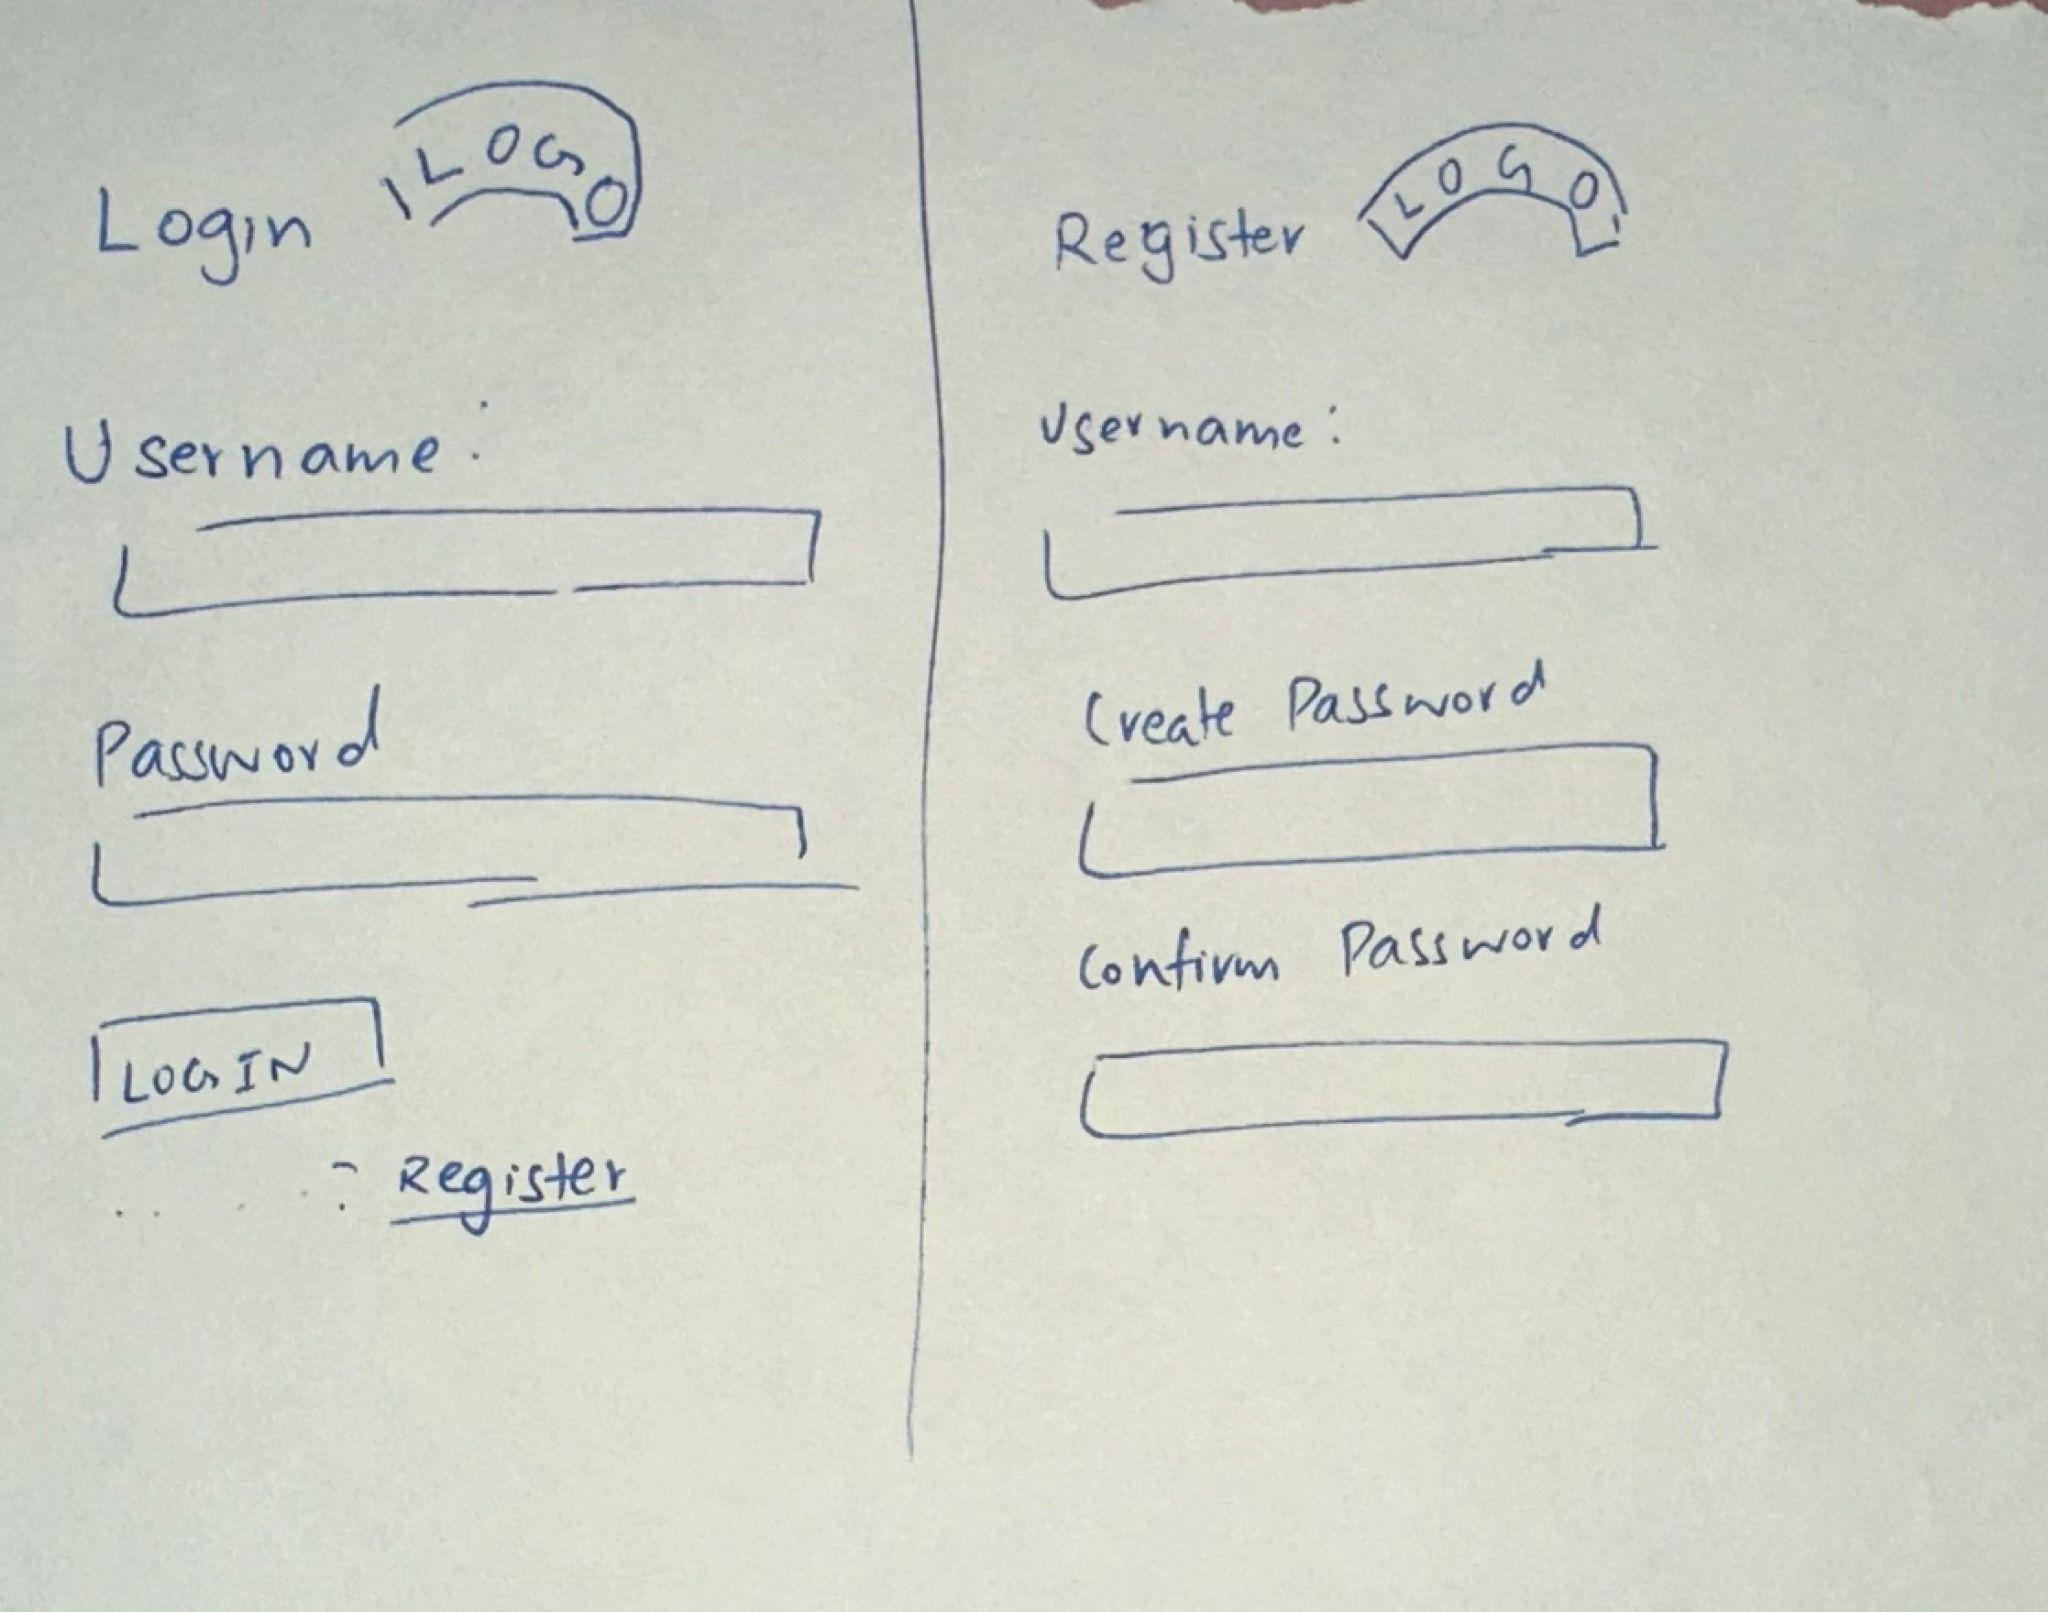 Login LOGO
Username:
Password
LOGIN
Register
Register LOGO
Username:
Create Password
Confirm Password